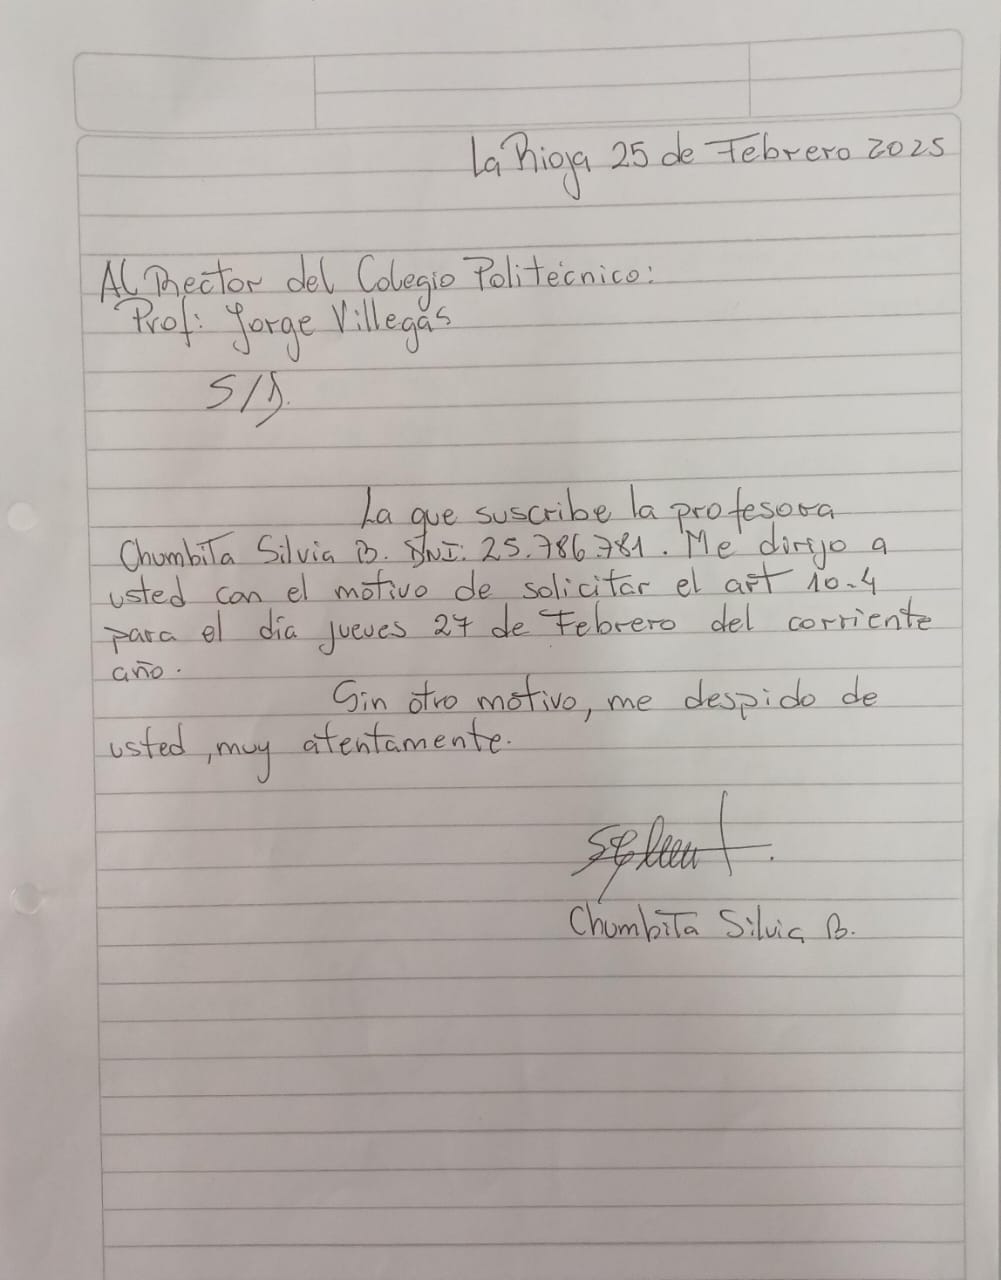 La Rioja 25 de Febrero 2025
Al Rector del Colegio Politécnico:
Prof: Jorge Villegas
S/D.
La que suscribe la profesora
Chumbita Silvia B. DNI: 25.786.781. Me dirijo a
usted con el motivo de solicitar el art 10-4
para el día jueves 27 de Febrero del corriente
año.
Sin otro motivo, me despido de
usted, muy atentamente.
Chumbita Silvia B.